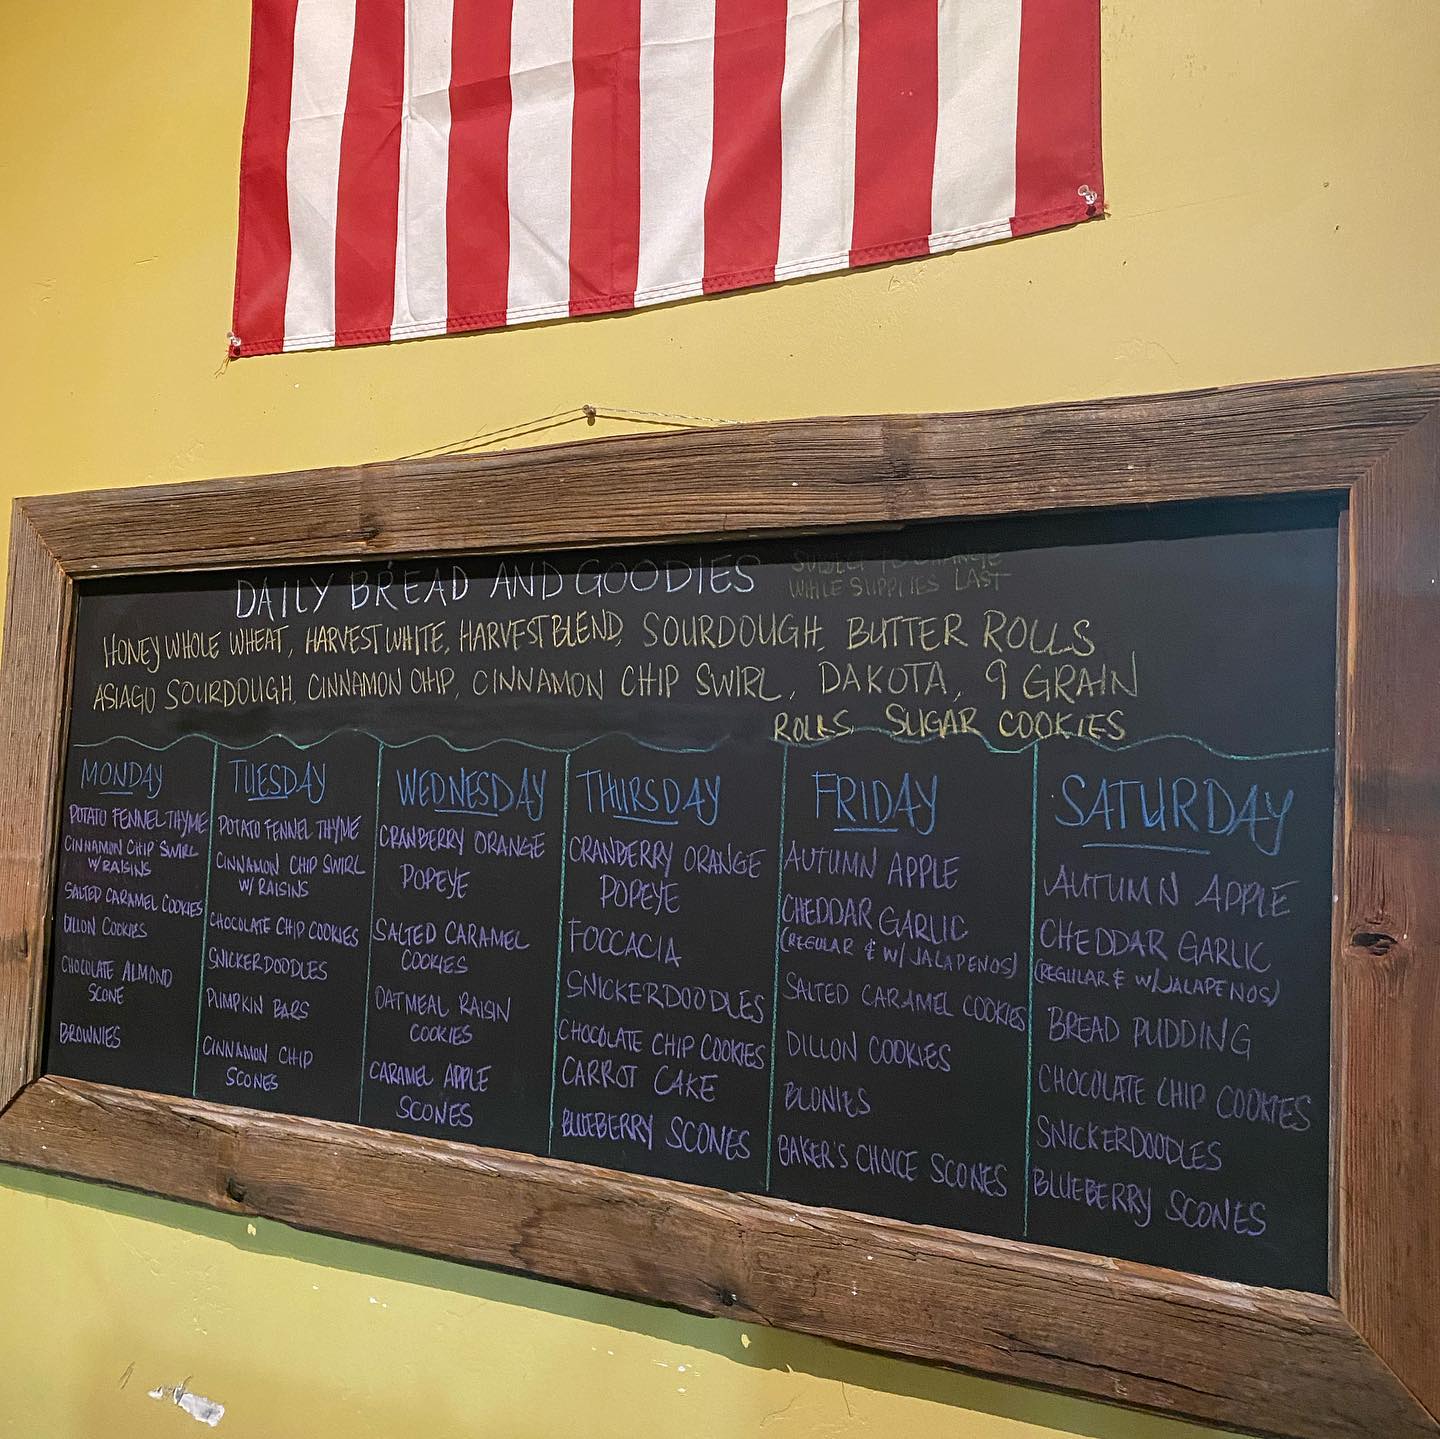 DAILY BREAD AND GOODIES
SUBJECT TO CHANGE
WHILE SUPPLIES LAST
HONEY WHOLE WHEAT, HARVEST WHITE, HARVEST BLEND, SOURDOUGH, BUTTER ROLLS
ASIAGO SOURDOUGH, CINNAMON CHIP, CINNAMON CHIP SWIRL, DAKOTA, 9 GRAIN
ROLLS SUGAR COOKIES
MONDAY
POTATO FENNEL THYME
CINNAMON CHIP SWIRL
W/RAISINS
SALTED CARAMEL COOKIES
DILLON COOKIES
CHOCOLATE ALMOND
SCONE
BROWNIES
TUESDAY
POTATO FENNEL THYME
CINNAMON CHIP SWIRL
W/ RAISINS
CHOCOLATE CHIP COOKIES
SNICKERDOODLES
PUMPKIN BARS
CINNAMON CHIP
SCONES
WEDNESDAY
CRANBERRY ORANGE
POPEYE
SALTED CARAMEL
COOKIES
OATMEAL RAISIN
COOKIES
CARAMEL APPLE
SCONES
THURSDAY
CRANBERRY ORANGE
POPEYE
FOCCACIA
SNICKERDOODLES
CHOCOLATE CHIP COOKIES
CARROT CAKE
BLUEBERRY SCONES
FRIDAY
AUTUMN APPLE
CHEDDAR GARLIC
(REGULAR & W/ JALAPENOS)
SALTED CARAMEL COOKIES
DILLON COOKIES
BLONIES
BAKER'S CHOICE SCONES
SATURDAY
AUTUMN APPLE
CHEDDAR GARLIC
(REGULAR & W/JALAPENOS)
BREAD PUDDING
CHOCOLATE CHIP COOKIES
SNICKERDOODLES
BLUEBERRY SCONES